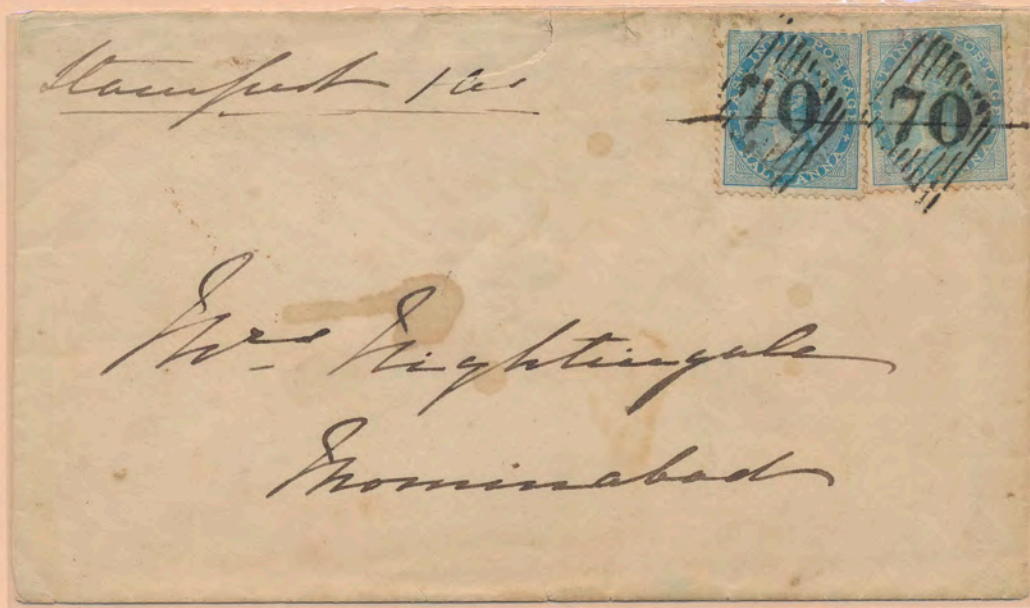 Stampfort 1 as
EAST INDIA POSTAGE
HALF ANNA
70
EAST INDIA POSTAGE
HALF ANNA
70
Mrs Nightingale
Mominabad